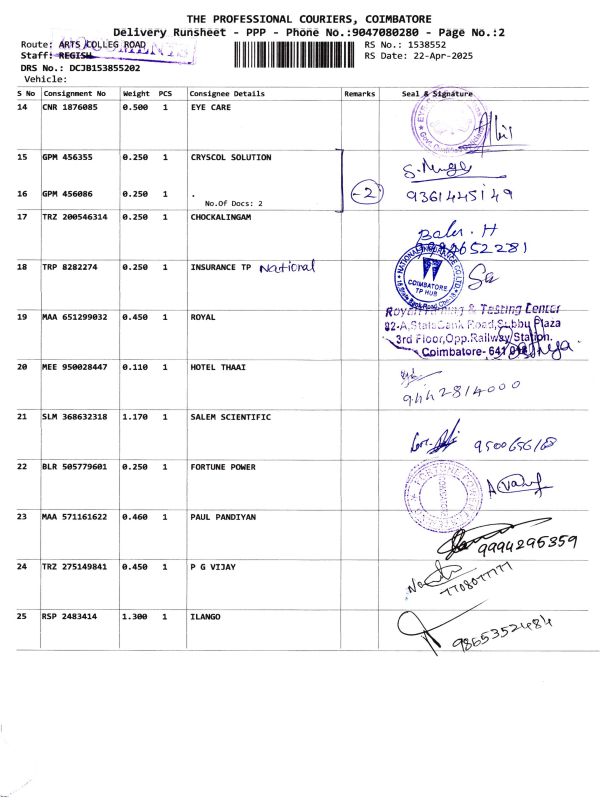 THE PROFESSIONAL COURIERS, COIMBATORE
Delivery Runsheet - PPP - Phone No.:9047080280 - Page No.:2
Route: ARTS COLLEG ROAD
RS No.: 1538552
Staff: REGISH
RS Date: 22-Apr-2025
DRS No.: DCJB153855202
Vehicle:
S No Consignment No Weight PCS Consignee Details Remarks Seal & Signature
14 CNR 1876085 0.500 1 EYE CARE
15 GPM 456355 0.250 1 CRYSCOL SOLUTION
16 GPM 456086 0.250 1 . -2 9361445149
No.Of Docs: 2
17 TRZ 200546314 0.250 1 CHOCKALINGAM
18 TRP 8282274 0.250 1 INSURANCE TP National
NATIONAL INSURANCE CO LTD
COIMBATORE
TP HUB
19 MAA 651299032 0.450 1 ROYAL
& Testing Center
82-A, State Bank Road, Subbu Plaza
3rd Floor, Opp. Railway Station.
Coimbatore- 641 018
20 MEE 950028447 0.110 1 HOTEL THAAI
9442814000
21 SLM 368632318 1.170 1 SALEM SCIENTIFIC
22 BLR 505779601 0.250 1 FORTUNE POWER
23 MAA 571161622 0.460 1 PAUL PANDIYAN
9994295359
24 TRZ 275149841 0.450 1 P G VIJAY
25 RSP 2483414 1.300 1 ILANGO
9865352484